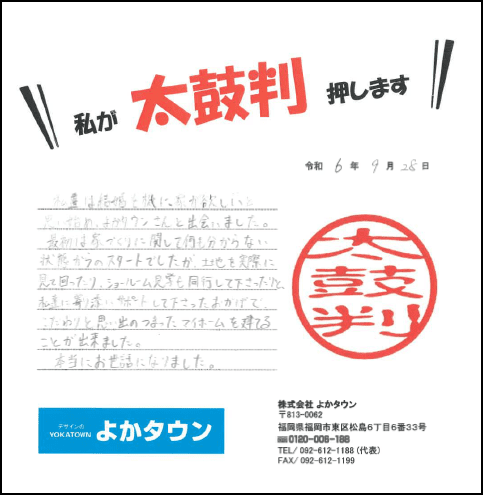 私が 太鼓判 押します
令和 6 年 9 月 28 日
私達は結婚を機に、家が欲しいと
思い始め、よかタウンさんと出会いました。
最初は家づくりに関して何も分からない
状態からのスタートでしたが、土地を実際に
見て回ったり、ショールーム見学も同行して下さったりと
私達に寄り添いサポートして下さったおかげで、
こだわりと思い出のつまったマイホームを建てる
ことが出来ました。
本当にお世話になりました。
太鼓判
デザインの
YOKATOWN よかタウン
株式会社 よかタウン
〒813-0062
福岡県福岡市東区松島6丁目6番33号
0120-008-188
TEL/ 092-612-1188 (代表)
FAX/ 092-612-1199